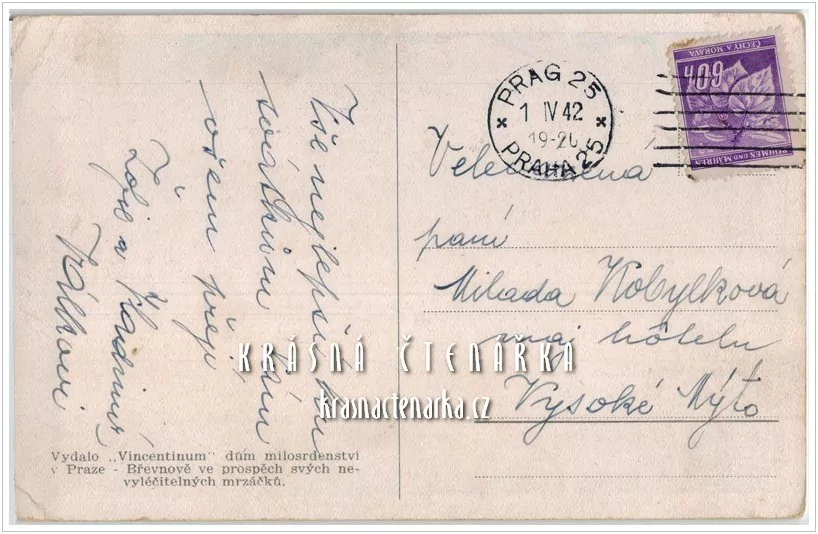 Vše nejlepší k
svátkům Vám
všem přejí
Zdylé a
PRAG 25
1 IV 42
19-20
PRAHA 25
ČECHY A MORAVA
60h
BÖHMEN UND MÄHREN
Velectěná
paní
Milada Kobylková
maj hôtelu
Vysoké Mýto
KRÁSNÁ ČTENÁŘKA
krasnactenarka.cz
Vydalo „Vincentinum" dům milosrdenství
v Praze - Břevnově ve prospěch svých ne-
vyléčitelných mrzáčků.